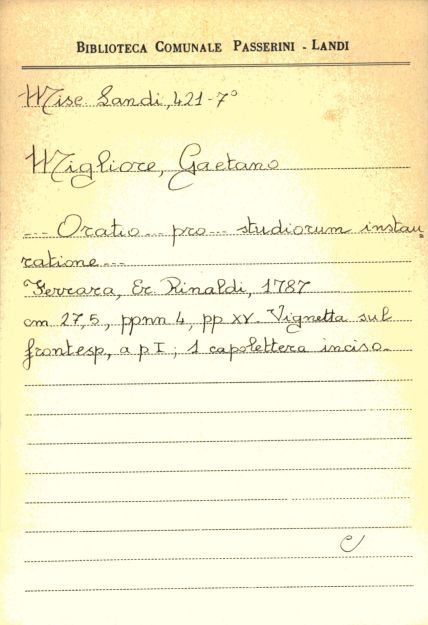 BIBLIOTECA COMUNALE PASSERINI - LANDI
Misc Landi, 421-7°
Migliore, Gaetano
--- Oratio --- pro --- studiorum instau-
ratione ---
Ferrara, Er. Rinaldi, 1787
cm 27,5, ppnn 4, pp XV. Vignetta sul
frontesp, a p I; 1 capolettera inciso.
C